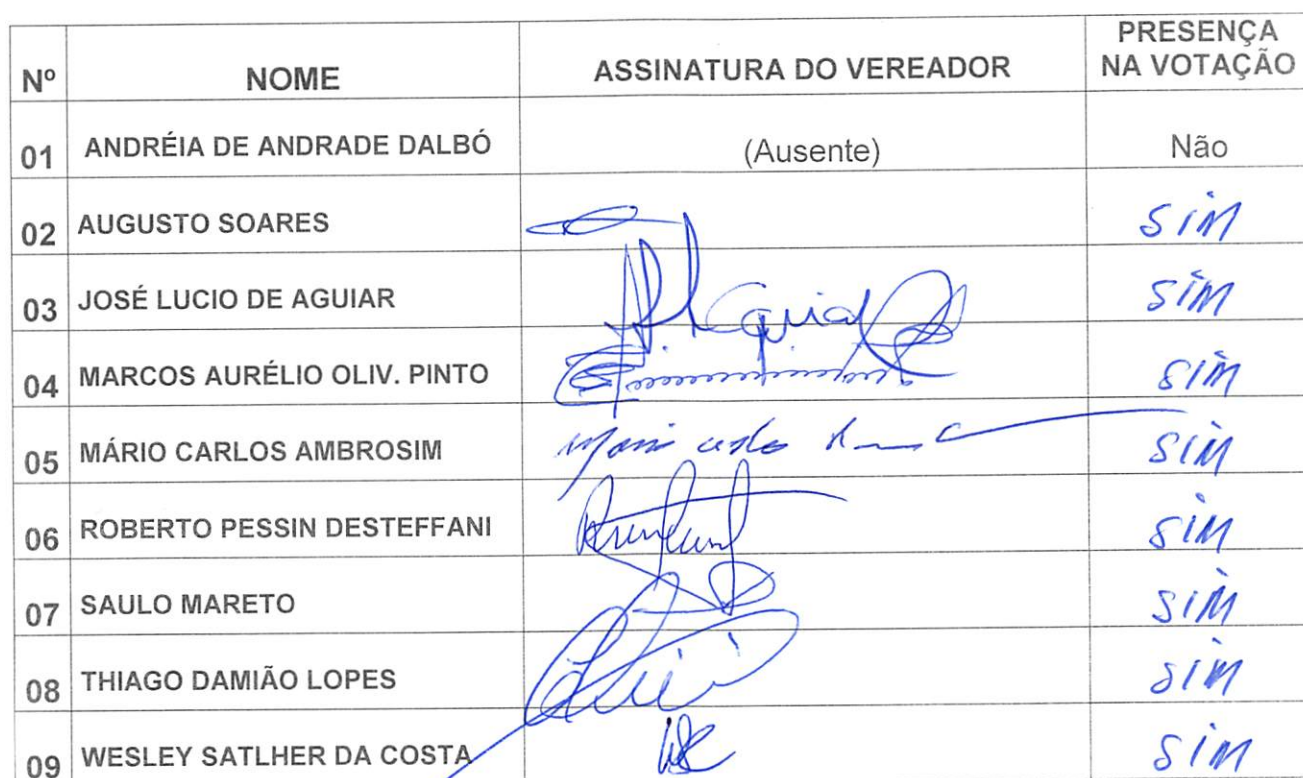 Nº NOME ASSINATURA DO VEREADOR PRESENÇA NA VOTAÇÃO
01 ANDRÉIA DE ANDRADE DALBÓ (Ausente) Não
02 AUGUSTO SOARES SIM
03 JOSÉ LUCIO DE AGUIAR SIM
04 MARCOS AURÉLIO OLIV. PINTO SIM
05 MÁRIO CARLOS AMBROSIM SIM
06 ROBERTO PESSIN DESTEFFANI SIM
07 SAULO MARETO SIM
08 THIAGO DAMIÃO LOPES SIM
09 WESLEY SATLHER DA COSTA SIM